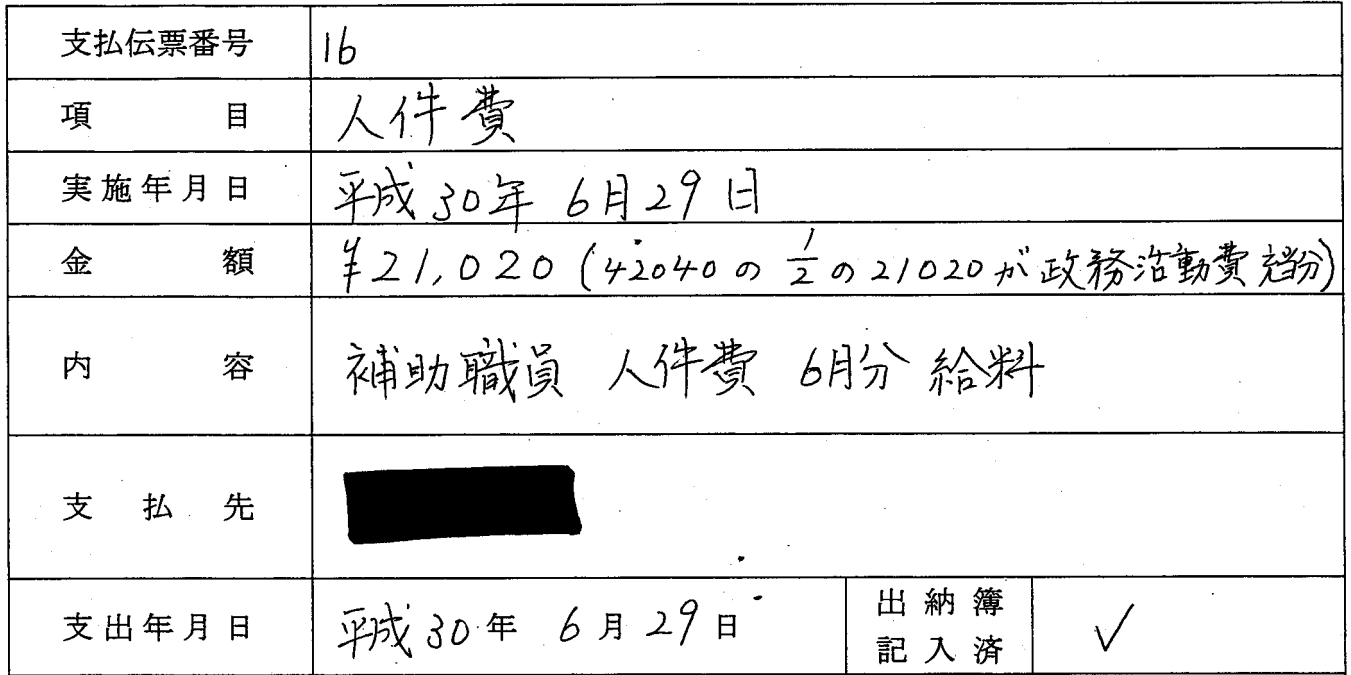 支払伝票番号 16
項目 人件費
実施年月日 平成30年 6月29日
金額 ¥21,020 (42040の 1/2 の21020が政務活動費充当分)
内容 補助職員 人件費 6月分 給料
支払先
支出年月日 平成30年 6月29日 出納簿記入済 ✓